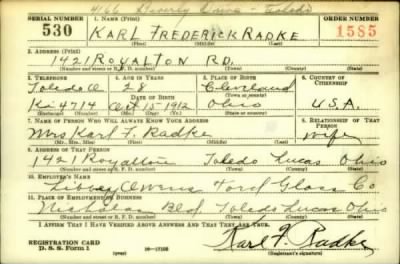 4166 Beverly Drive - Toledo
SERIAL NUMBER 1. NAME (Print) ORDER NUMBER
530 KARL FREDERICK RADKE 1585
(First) (Middle) (Last)
2. ADDRESS (Print)
1421 ROYALTON RD.
(Number and street or R. F. D. number) (Town) (County) (State)
3. TELEPHONE 4. AGE IN YEARS 5. PLACE OF BIRTH 6. COUNTRY OF CITIZENSHIP
Toledo O 28 Cleveland
DATE OF BIRTH
Ki 4714 Oct 15 1912 Ohio U.S.A.
(Exchange) (Number) (Mo.) (Day) (Yr.) (State or country)
7. NAME OF PERSON WHO WILL ALWAYS KNOW YOUR ADDRESS 8. RELATIONSHIP OF THAT PERSON
Mrs Karl F. Radke wife
(Mr., Mrs., Miss) (First) (Middle) (Last)
9. ADDRESS OF THAT PERSON
1421 Royalton Toledo Lucas Ohio
(Number and street or R. F. D. number) (Town) (County) (State)
10. EMPLOYER'S NAME
Libbey Owens Ford Glass Co
11. PLACE OF EMPLOYMENT OR BUSINESS
Nicholas Bld. Toledo Lucas Ohio
(Number and street or R. F. D. number) (Town) (County) (State)
I AFFIRM THAT I HAVE VERIFIED ABOVE ANSWERS AND THAT THEY ARE TRUE.
Karl F. Radke
REGISTRATION CARD
D. S. S. Form 1 (over) 16-17105 (Registrant's signature)